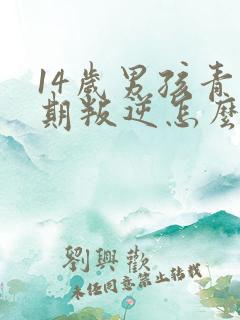 14歲男孩青
期叛逆怎麼
劉興歡
未經同意禁止轉載